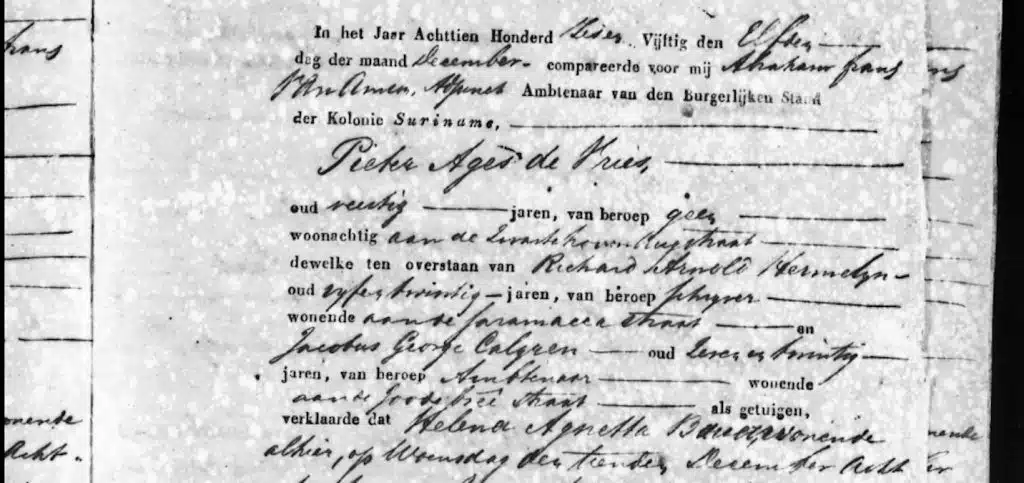 In het Jaar Achttien Honderd Zes en Vijftig den Elfden
dag der maand December compareerde voor mij Abraham frans
Van Amen, Adjunct Ambtenaar van den Burgerlijken Stand
der Kolonie Suriname,
Pieter Ages de Vries,
oud veertig jaren, van beroep geen
woonachtig aan de Zwartehovenbrugstraat
dewelke ten overstaan van Richard Arnold Hermelyn
oud vyfentwintig jaren, van beroep schryver
wonende aan de Saramacca straat en
Jacobus George Calgren oud Zeven en twintig
jaren, van beroep Ambtenaar wonende
aan de Joodebree straat als getuigen,
verklaarde dat Helena Agnetta wonende
alhier, op Woensdag den tienden December Acht
frans
ns
onende
nende
Acht
er